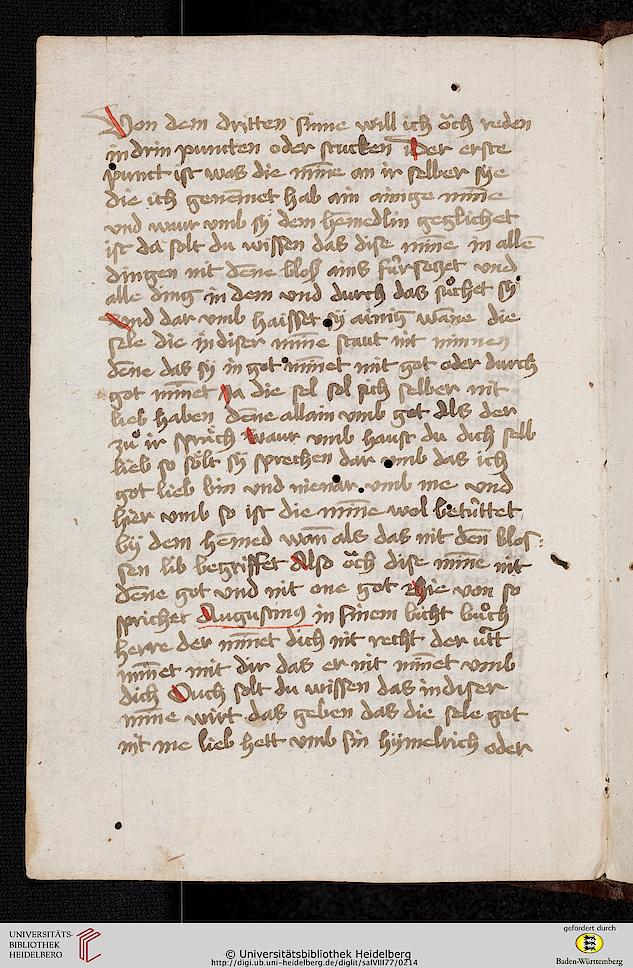 Von dem dritten sinne will ich öch reden
in drin puncten oder stucken Der erste
punct ist was die mīne an ir selber sÿe
die ich genēmet hab ain ainige mīne
vnd waur vmb sÿ dem hēmedlin geglichet
ist da solt du wissen das dise mīne in allē
dingen nit dēne blosß ains fürsetzet vnd
alle ding in dem vnd durch das sůchet sÿ
vnd dar vmb haisset sÿ ainig wāne die
sele die in diser mīne staut nit minnen
dēne das sÿ in got mīnet mit got oder durch
got mīnet Ja die sel sol sich selber nit
lieb haben dēne allain vmb got Als der
zů ir spräch waur vmb haust du dich selb
lieb so sölt sÿ sprechen dar vmb das ich
got lieb bin vnd nienar vmb me vnd
hier vmb so ist die mīne wol betüttet
bÿ dem hēmed wañ als das nit deñ blos:
sen lib begriffet Also öch dise mīne nit
dēne got vnd nit one got Hie von so
sprichet Augustinus in sinem bücht bůch
herre der mīnet dich nit recht der ütt
mīnet mit dir das er nit mīnet vmb
dich Ouch solt du wissen das in diser
mīne wirt das geben das die sele got
nit me lieb hett vmb sin hÿmelrich oder
UNIVERSITÄTS-
BIBLIOTHEK
HEIDELBERG
© Universitätsbibliothek Heidelberg
http://digi.ub.uni-heidelberg.de/diglit/salVIII77/0214
gefördert durch
Baden-Württemberg